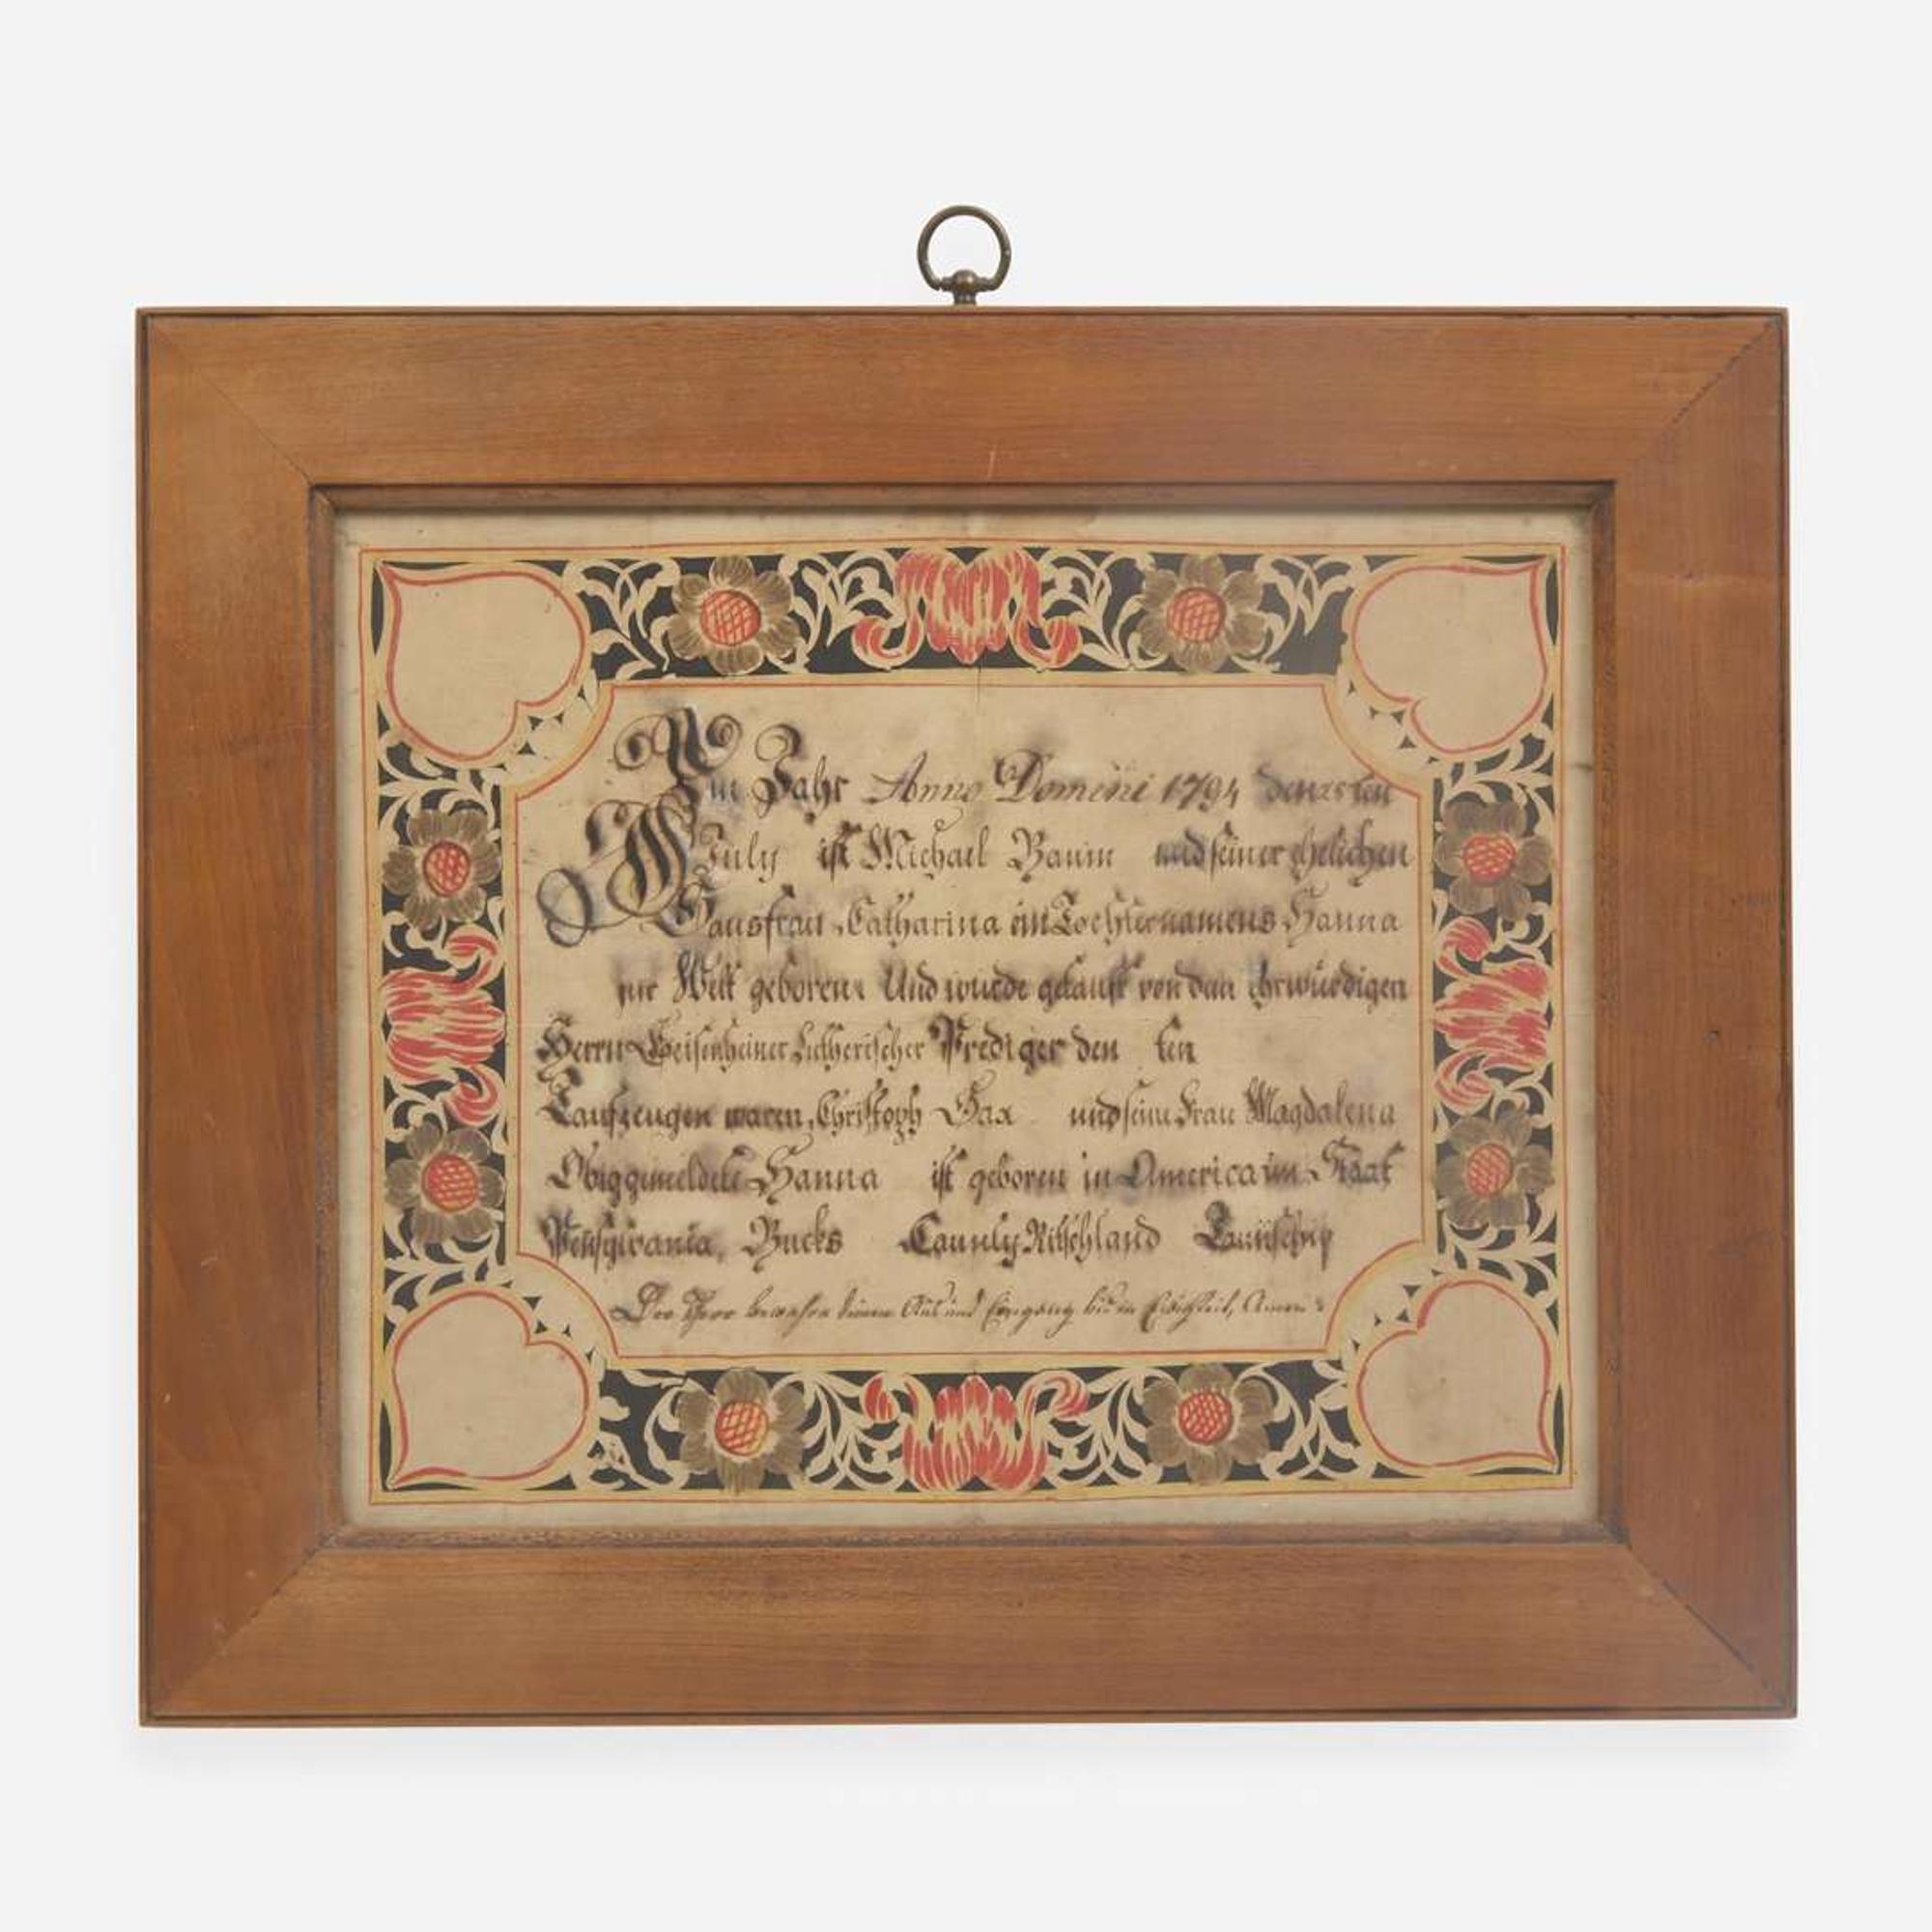 Im Jahr Anno Domini 1794 den ten
July ist Michael Baum und seiner ehelichen
Hausfrau Catharina ein Tochter namens Hanna
zur Welt geboren: Und wurde getauft von dem Ehrwürdigen
Herrn Geisenheiner Lutherischer Prediger den ten
Taufzeugen waren, Christoph Sax und seine Frau Magdalena
Obiggemeldete Hanna ist geboren in America im Staat
Pensylvania, Bucks Caunly Ritschland Taunschip
Der Herr bewahre deinen Aus und Eingang bis in Ewigkeit, Amen: